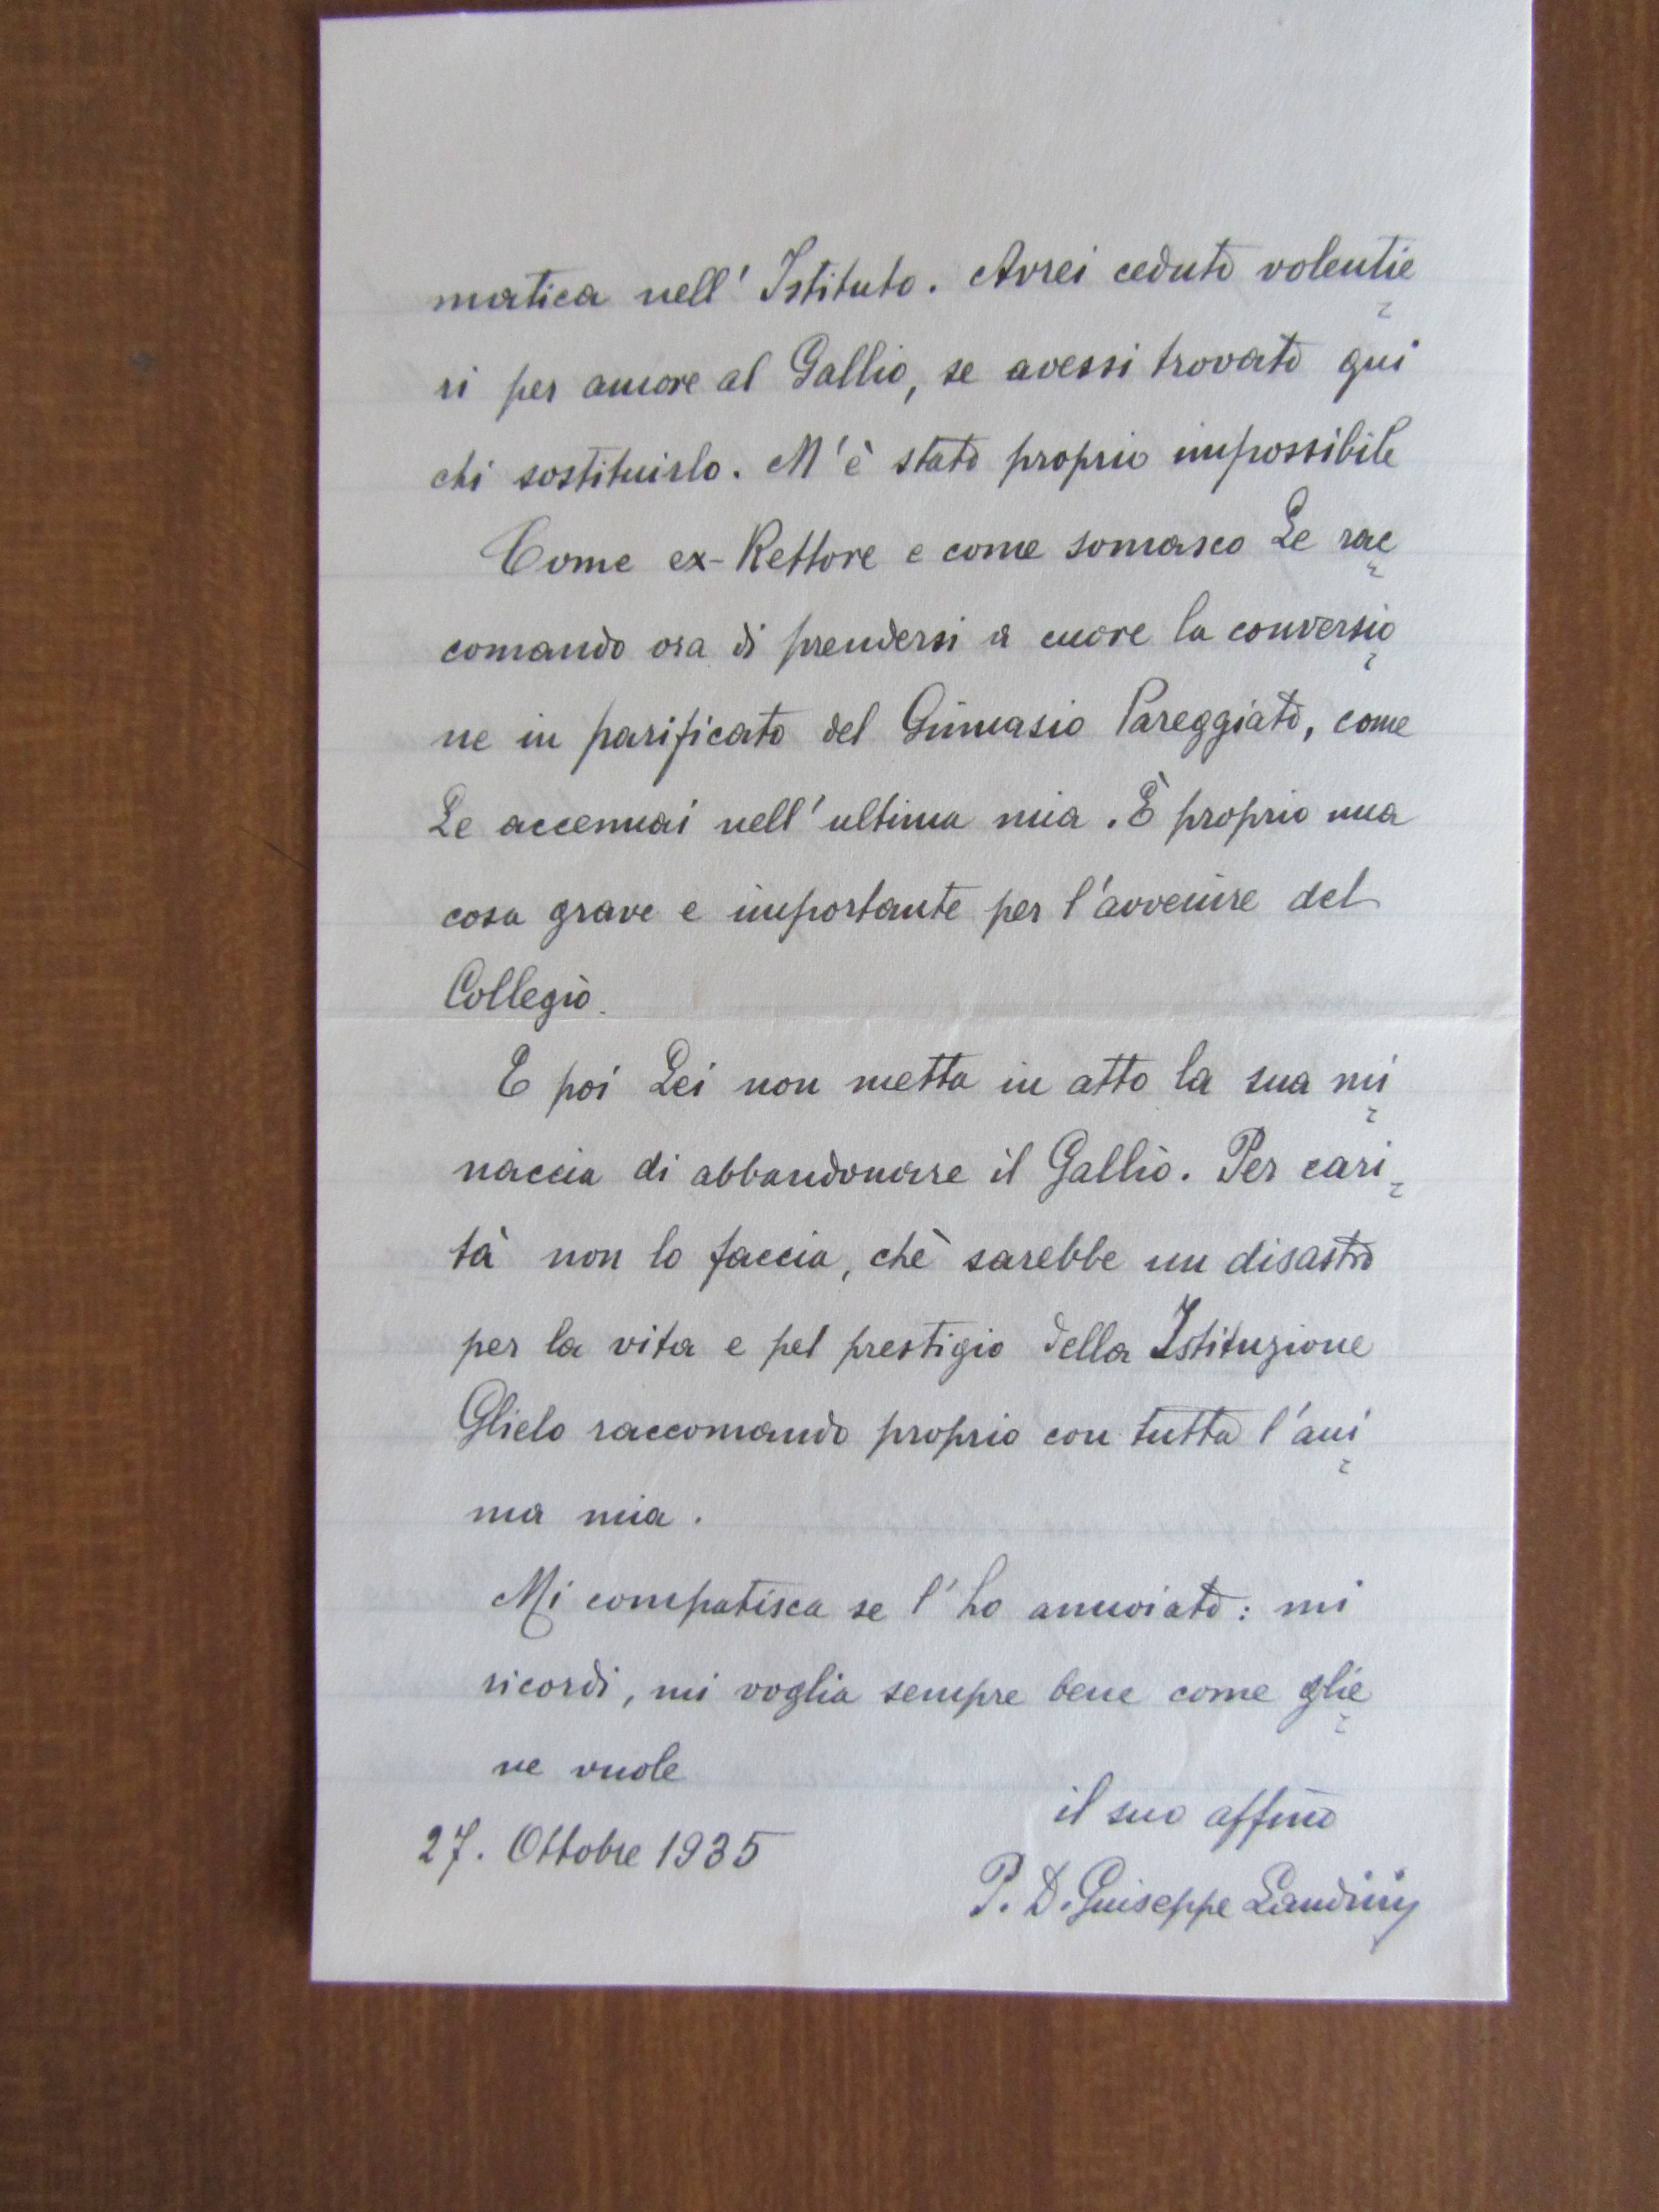 matica nell' Istituto. Avrei ceduto volentie
ri per amore al Gallio, se avessi trovato qui
chi sostituirlo. M'è stato proprio impossibile
Come ex-Rettore e come somasco Le rac
comando ora di prendersi a cuore la conversio
ne in parificato del Ginnasio Pareggiato, come
Le accennai nell'ultima mia. È proprio una
cosa grave e importante per l'avvenire del
Collegio.
E poi Lei non metta in atto la sua mi
naccia di abbandonare il Gallio. Per cari
tà non lo faccia, chè sarebbe un disastro
per la vita e pel prestigio della Istituzione
Glielo raccomando proprio con tutta l'ani
ma mia.
Mi compatisca se l'ho annoiato: mi
ricordi, mi voglia sempre bene come glie
ne vuole
il suo affmo
27. Ottobre 1935
P. D. Giuseppe Landini